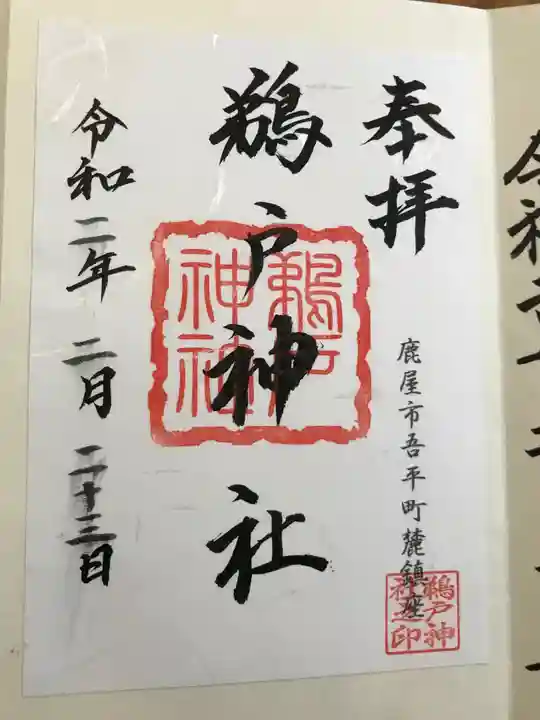 奉拝
鹿屋市吾平町麓鎮座
鵜戸神社
鵜戸神社
鵜戸神
社之印
令和二年 二月 二十三日